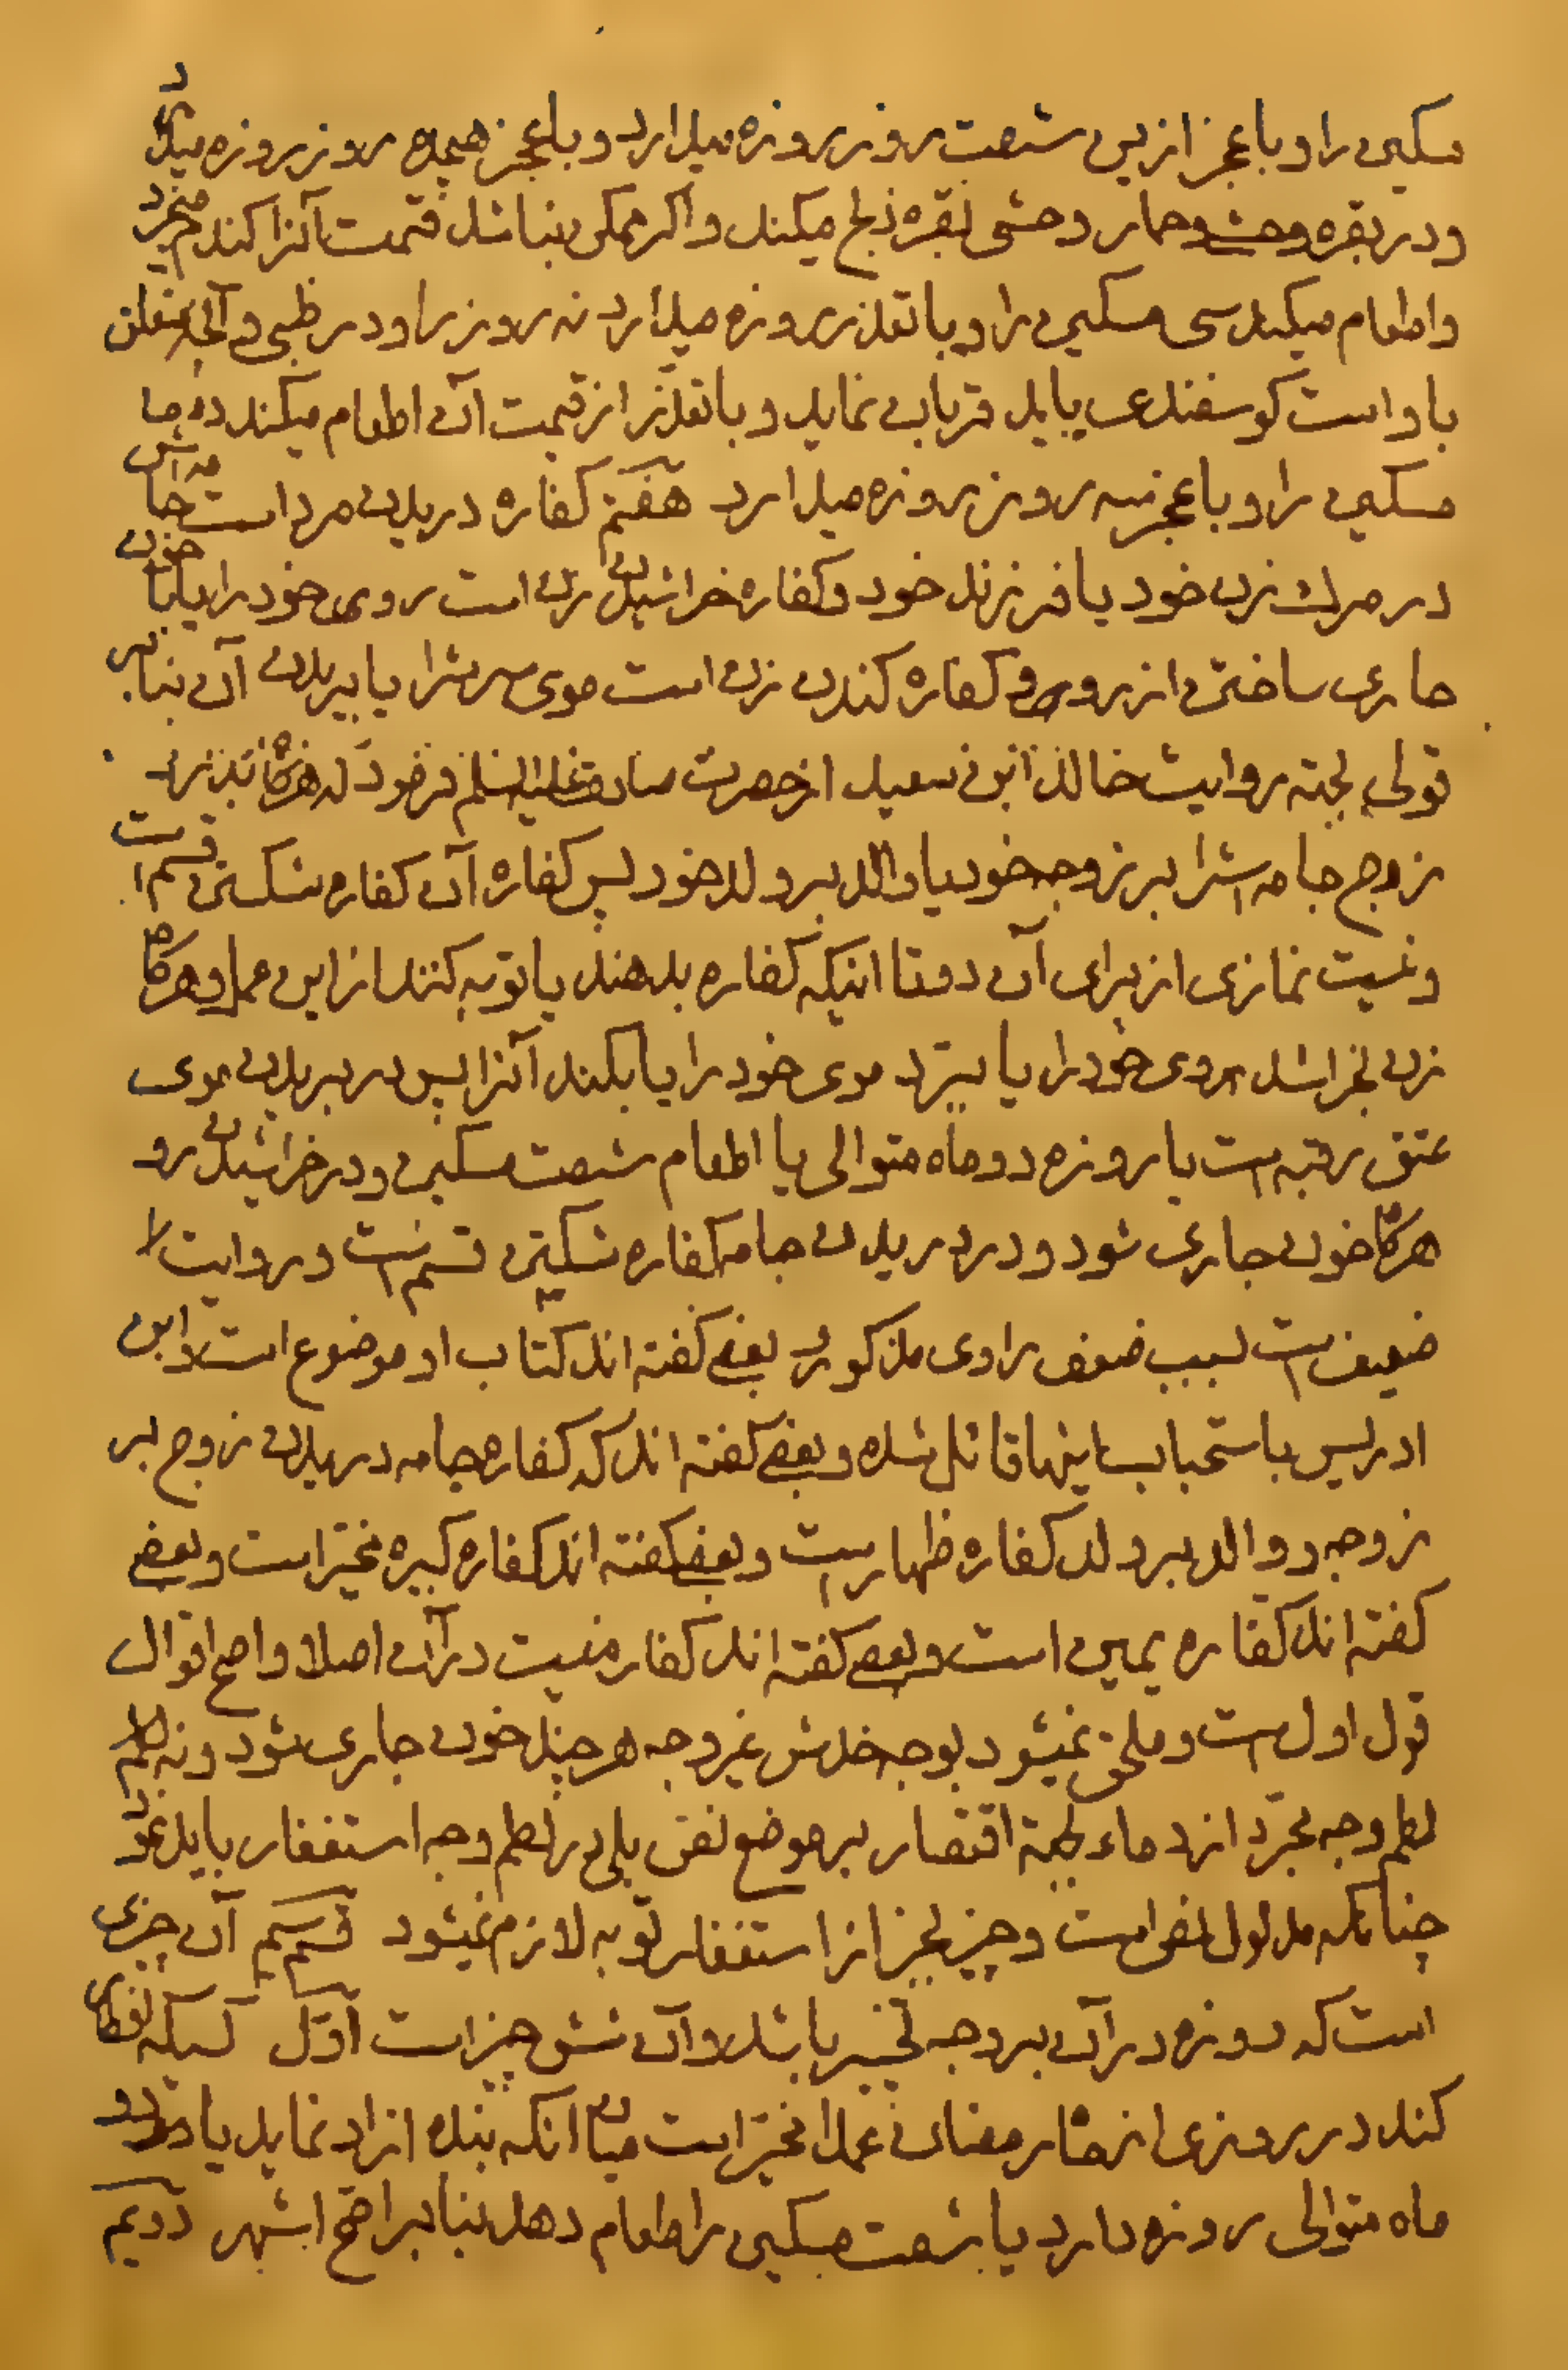 مسکین را و با عجز ازین شصت روز روزه میدارد و با عجز هیجده روز روزه میدارد
و در بقره وحش و حمار وحشی بقره ذبح میکند و اگر ممکن نباشد قیمت آنرا کندم میخرد
و اطعام میکند سی مسکین را و با تعذر روزه میدارد نه روز را و در ظبی و آنچه متعلق
باو است کوسفندی باید قربانی نماید و با تعذر از قیمت آن اطعام میکند ده
مسکین را و با عجز سه روز روزه میدارد هفتم کفاره دریدن مرد است جامه اش
در مرک زن خود یا فرزند خود و کفاره خراشیدن زن است روی خود را یا با خون
جاری ساختن از روی و کفاره کندن زن است موی سرش را یا بریدن آن بنا بر
قولی بجهة روایت خالد ابن سعید از حضرت صادق علیه السلم فرمود که هرگاه بدرد
زوج جامه اش را بر زوجه خود یا والد بر ولد خود پس کفاره آن کفاره شکستن قسم است
و نیست نمازی از برای آن دو تا اینکه کفاره بدهند یا توبه کنند از این عمل و هرگاه
زن بخراشد روی خود را یا ببرد موی خود را یا بکند آنرا پس در بریدن موی
عتق رقبه است یا روزه دو ماه متوالی یا اطعام شصت مسکین و در خراشیدن رو
هرگاه خون جاری شود و در دریدن جامه کفاره شکستن قسم است و روایت
ضعیف است بسبب ضعف راوی مذکور بعضی کفته اند کتاب او موضوع است و ابن
ادریس باستحباب اینها قائل شده و بعضی کفته اند که کفاره جامه دریدن زوج بر
زوجه و والد بر ولد کفاره ظهار است و بعضی کفته اند کفاره کبیره مخیر است و بعضی
کفته اند کفاره یمین است و بعضی کفته اند کفاره نیست در آن اصلا و اصح اقوال
قول اول است و ملحق نمیشود بوجه خدش غیر وجه هر چند خون جاری شود و نه
لطم وجه مجرد از دماء بجهة اقتصار بر موضع نص بلی در لطم وجه استغفار باید نمود
چنانکه مدلول نص است و چیزی بجز از استغفار توبه لازم نمیشود قسم سیم آن چیزی
است که روزه در آن بر وجه تخییر باشد و آن شش چیز است اول کسیکه افطار
کند در روزی از ماه رمضان عمدا مخیر است میان انکه بنده ازاد نماید یا دو
ماه متوالی روزه دارد یا شصت مسکین را طعام دهد بنا بر اصح اشهر دویم